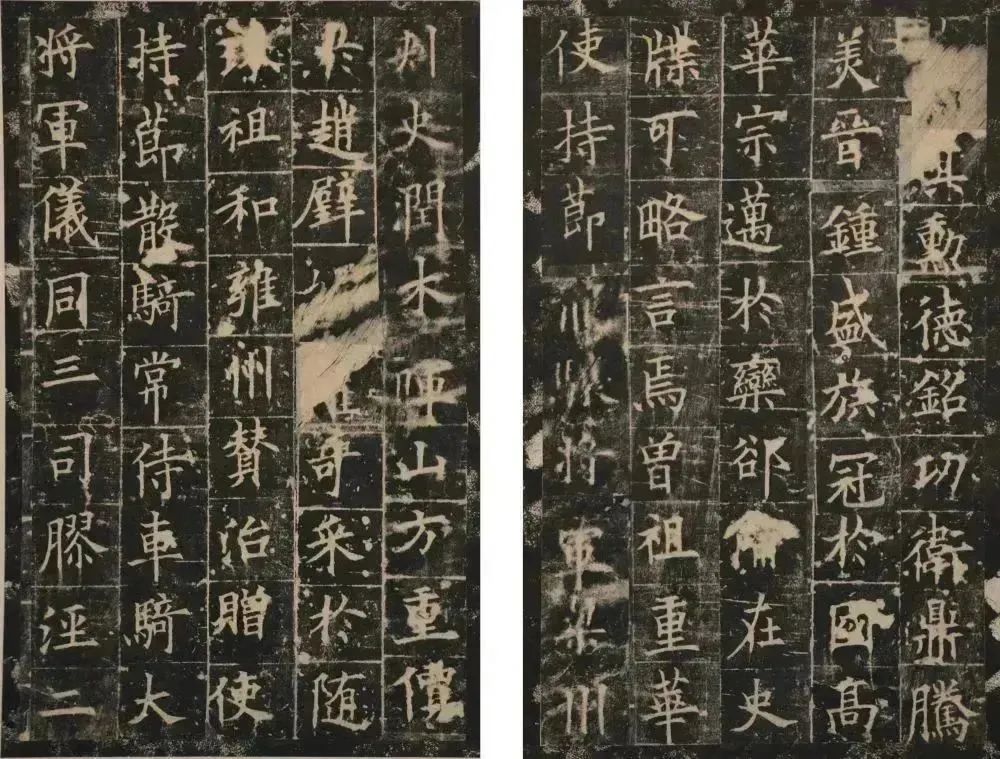 其勳德銘功衛鼎騰
美晉鍾盛族冠於國高
華宗邁於欒郤在史
牒可略言焉曾祖重華
使持節將軍梁州
刾史潤木暉山方重價
於趙璧奇采於随
珠祖和雍州賛治贈使
持節散騎常侍車騎大
將軍儀同三司膠涇二